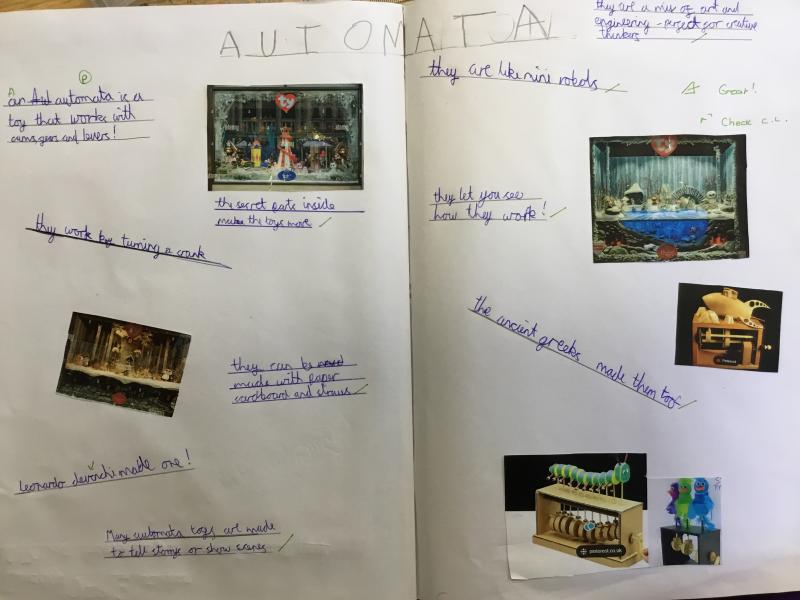 AUTOMATA
A
P
an automata is a
toy that works with
cams, gears and levers!
the secret parts inside
makes the toys move
they work by turning a crank
they can be
made with paper
cardboard and straws
Leonardo made one!
Many automata toys are made
to tell storys or show scenes
they are a mix of art and
engineering - perfect for creative
thinkers
they are like mini robots
A Great!
Check C.L.
they let you see
how they work!
the ancient greeks made them too
Pinterest
pinterest.co.uk